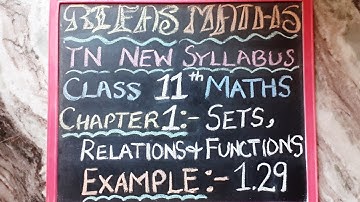 RIFAS MATHS
TN NEW SYLLABUS
CLASS 11th MATHS
CHAPTER 1:- SETS,
RELATIONS & FUNCTIONS
EXAMPLE:- 1.29